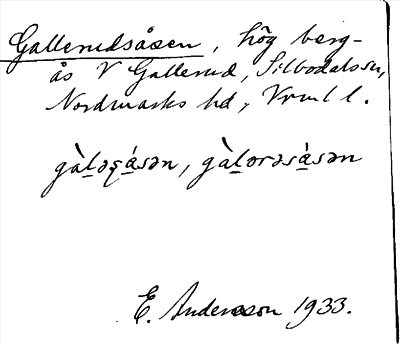 Gallerudsåsen, hög berg-
ås V Gallerud, Silbodals sn,
Nordmarks hd, Vrml l.
gàl̠əʂásən, gàl̠ərəsásən
E. Andersson 1933.